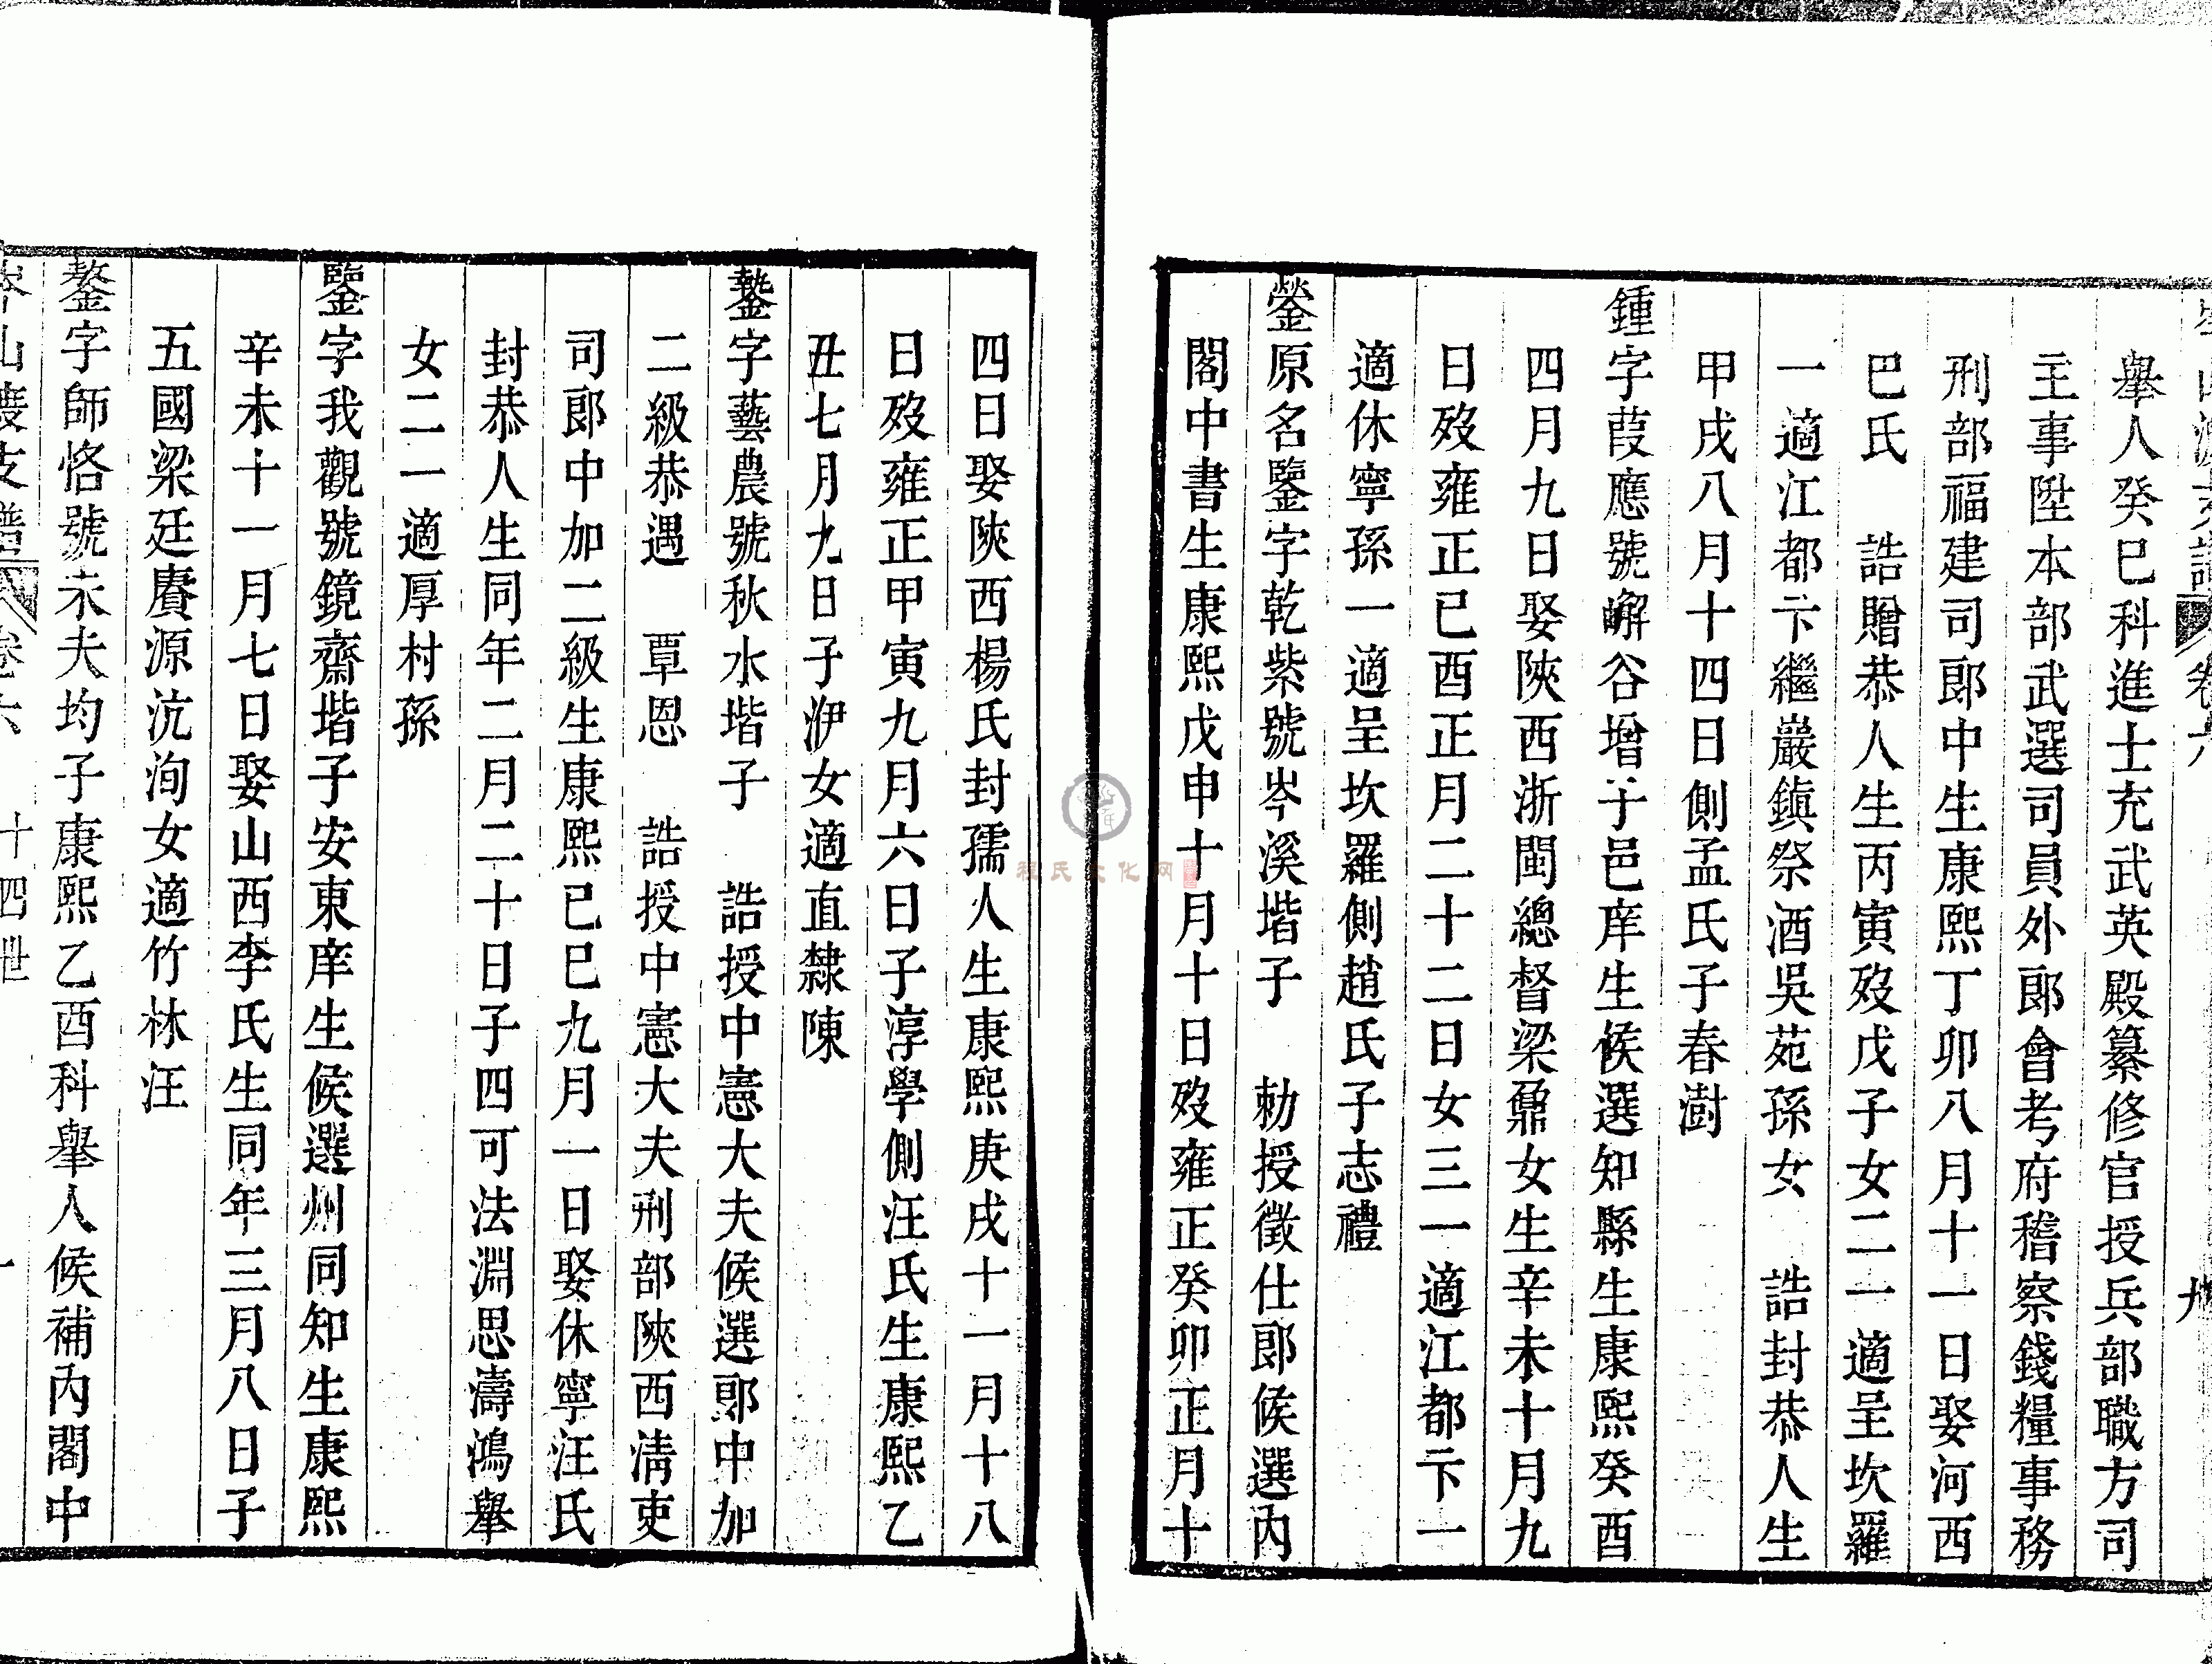 舉人癸巳科進士充武英殿纂修官授兵部職方司
主事陞本部武選司員外郎會考府稽察錢糧事務
刑部福建司郎中生康熙丁卯八月十一日娶河西
巴氏 誥贈恭人生丙寅歿戊子女二一適呈坎羅
一適江都卞繼巖鎮祭酒吳苑孫女 誥封恭人生
甲戌八月十四日側孟氏子春澍
鍾字葭應號嶰谷增子邑庠生候選知縣生康熙癸酉
四月九日娶陝西浙閩總督梁鼐女生辛未十月九
日歿雍正己酉正月二十二日女三一適江都卞一
適休寧孫一適呈坎羅側趙氏子志禮
鎣原名鑒字乾紫號岑溪堦子 勅授徵仕郎候選內
閣中書生康熙戊申十月十日歿雍正癸卯正月十
四日娶陝西楊氏封孺人生康熙庚戌十一月十八
日歿雍正甲寅九月六日子淳學側汪氏生康熙乙
丑七月九日子洢女適直隸陳
鏊字藝農號秋水堦子 誥授中憲大夫候選郎中加
二級恭遇 覃恩 誥授中憲大夫刑部陝西淸吏
司郎中加二級生康熙己巳九月一日娶休寧汪氏
封恭人生同年二月二十日子四可法淵思濤鴻舉
女二一適厚村孫
鑒字我觀號鏡齋堦子安東庠生候選州同知生康熙
辛未十一月七日娶山西李氏生同年三月八日子
五國梁廷賡源沆洵女適竹林汪
鏊字師恪號未夫均子康熙乙酉科舉人候補內閣中
岑山渡支譜 卷六 十四世